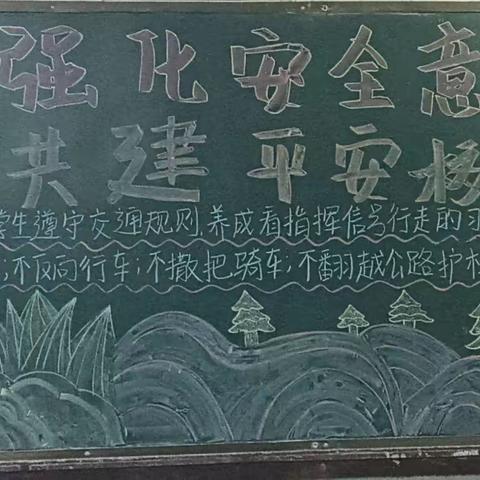 强化安全意
共建平安校
学生遵守交通规则,养成看指挥信号行走的习
;不反向行车;不撒把骑车;不翻越公路护栏